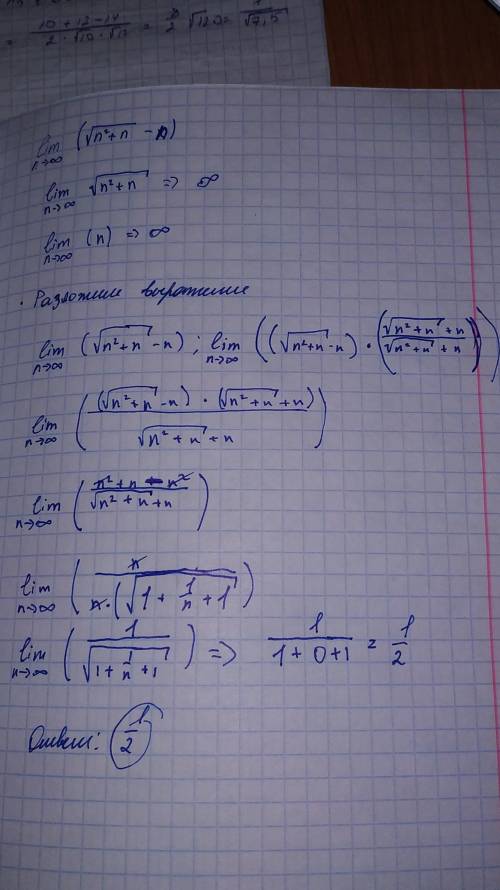 = (10 + 12 - 14)/(2 · √10 · √12) = /2 √120 = 1/√7,5
lim n→∞ (√(n²+n) - n)
lim n→∞ √(n²+n) => ∞
lim n→∞ (n) => ∞
· Разложим выражение
lim n→∞ (√(n²+n) - n) ; lim n→∞ ((√(n²+n) - n) · (√(n²+n) + n)/(√(n²+n) + n))
lim n→∞ ((√(n²+n) - n) · (√(n²+n) + n)/(√(n²+n) + n))
lim n→∞ ((n²+n - n²)/(√(n²+n) + n))
lim n→∞ (n/(n·(√(1 + 1/n + 1)))
lim n→∞ (1/√(1 + 1/n + 1)) => 1/(1+0+1) = 1/2
Ответ: 1/2